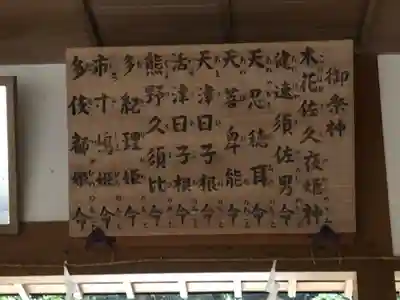 御祭神
木花佐久夜姫神
建速須佐男命
天忍穂耳命
天菩卑能命
天津日子根命
活津日子根命
熊野久須比命
多紀理姫命
市寸嶋姫命
多伎都姫命